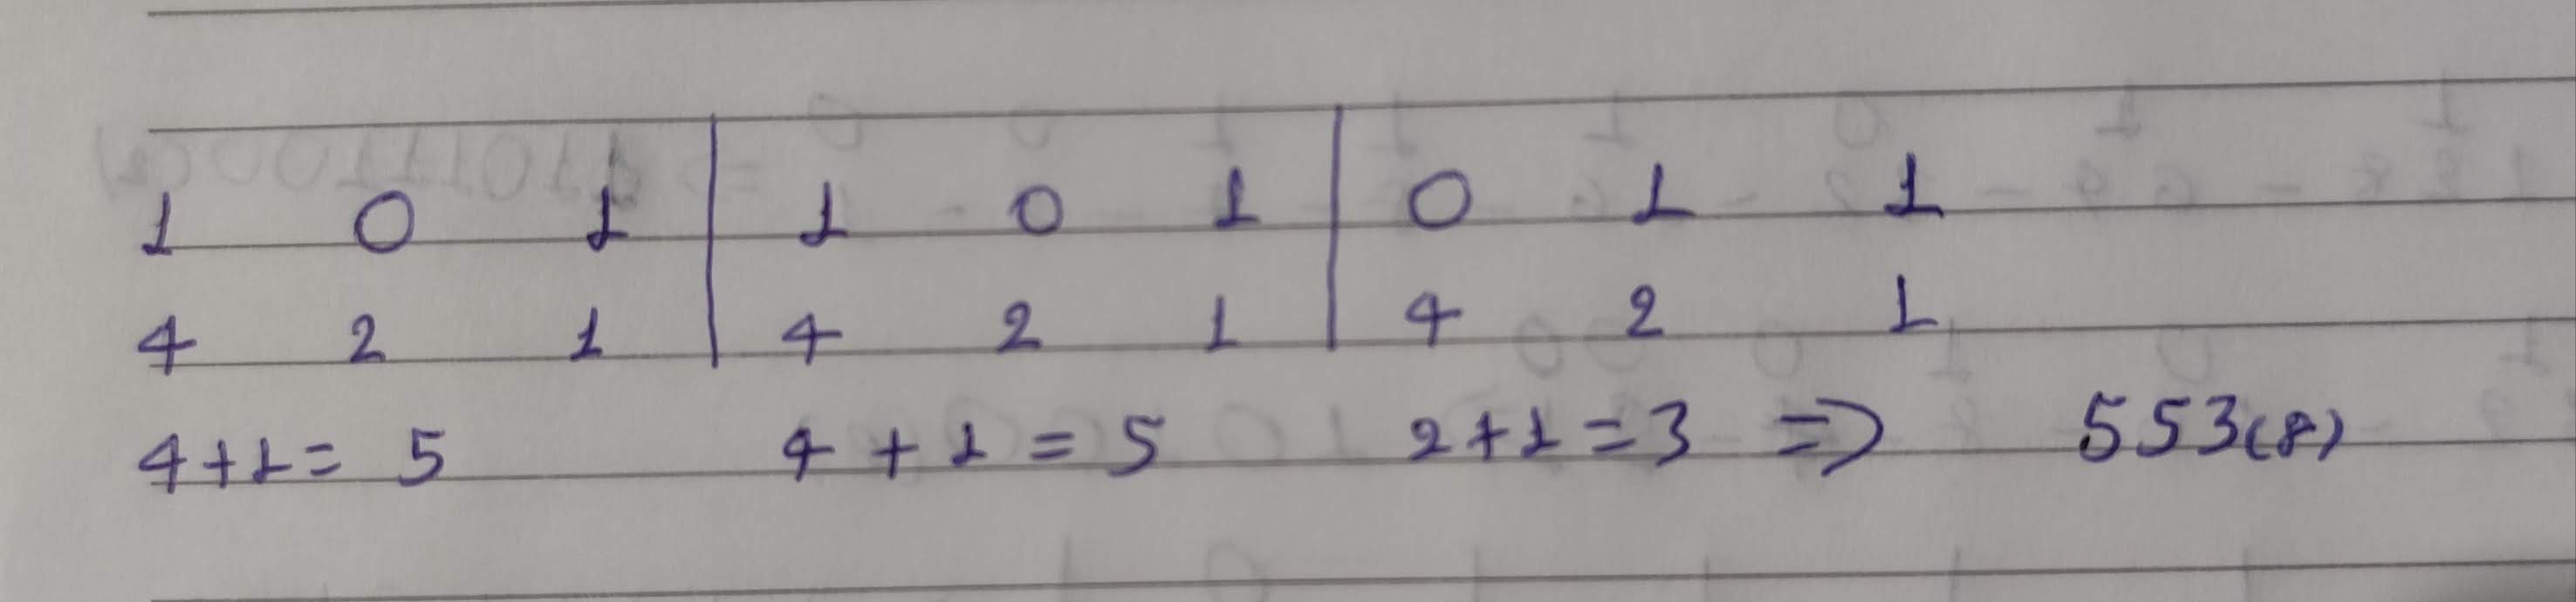 1 0 1 | 1 0 1 | 0 1 1
4 2 1 | 4 2 1 | 4 2 1
4+1= 5 4+1=5 2+1=3 => 553(8)